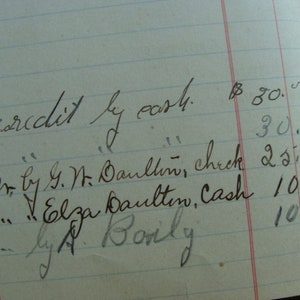 credit by cash. $ 30.
" " " 30.
" by G. W. Daulton, check 25
" " Elza Daulton, Cash 10
" by 10